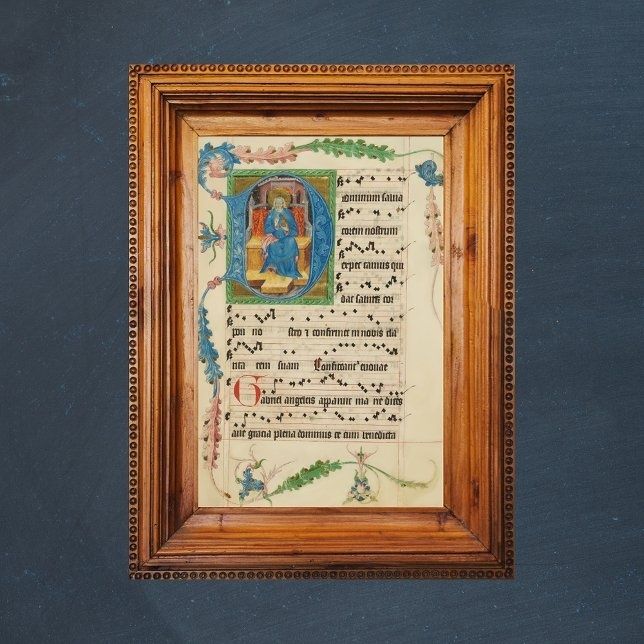 Dominum salua
torem nostrum
expec tamus qui
dat sanitatē cor
pori no stro ⁊ confirmet in nobis cla
rita tem suam Confiteant' euouae
Gabriel angelus apparuit ma rie dices
aue gracia plena dominus te cum benedicta